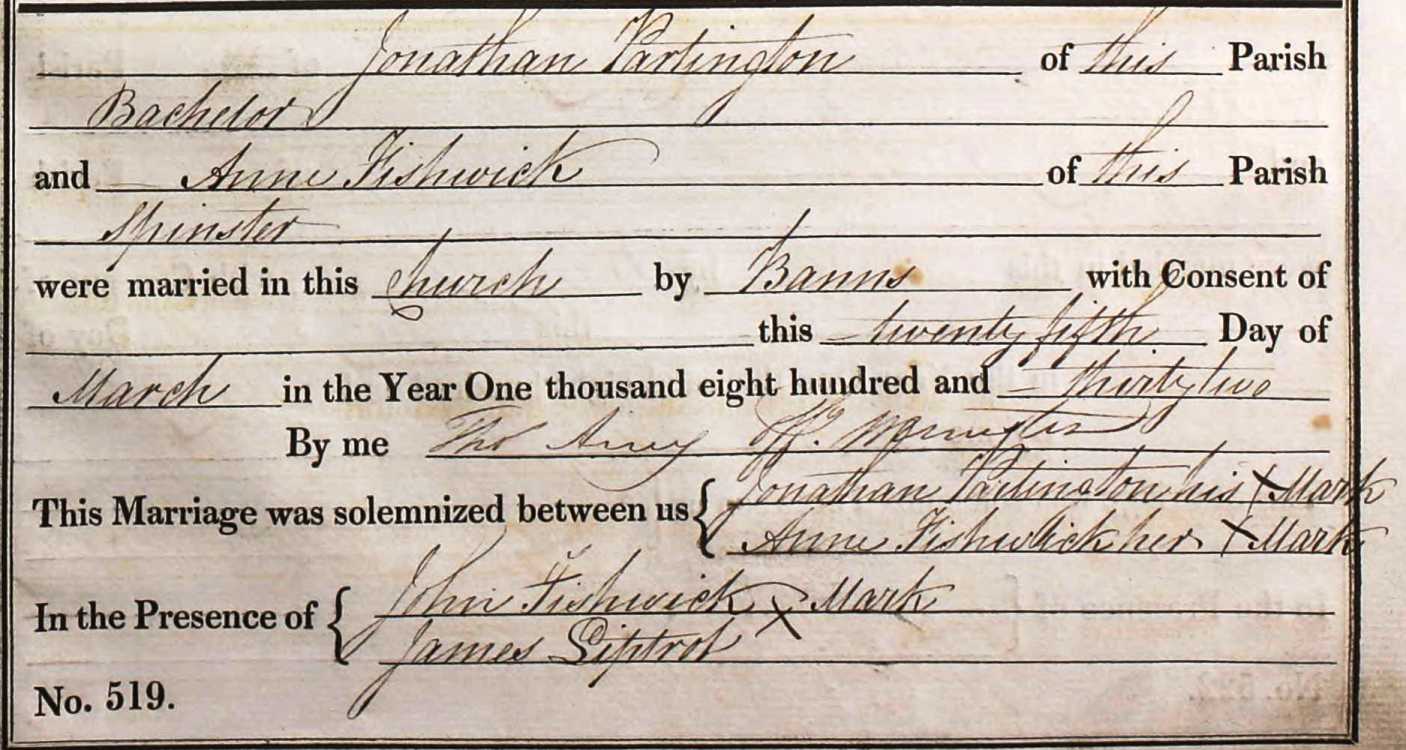 Jonathan Partington of this Parish
Bachelor
and Anne Fishwick of this Parish
Spinster
were married in this Church by Banns with Consent of
this twenty fifth Day of
March in the Year One thousand eight hundred and thirty two
By me Tho^s Off. Minister
This Marriage was solemnized between us { Jonathan Partington his X Mark
Anne Fishwick her X Mark
In the Presence of { John Fishwick X Mark
James Liptrot
No. 519.